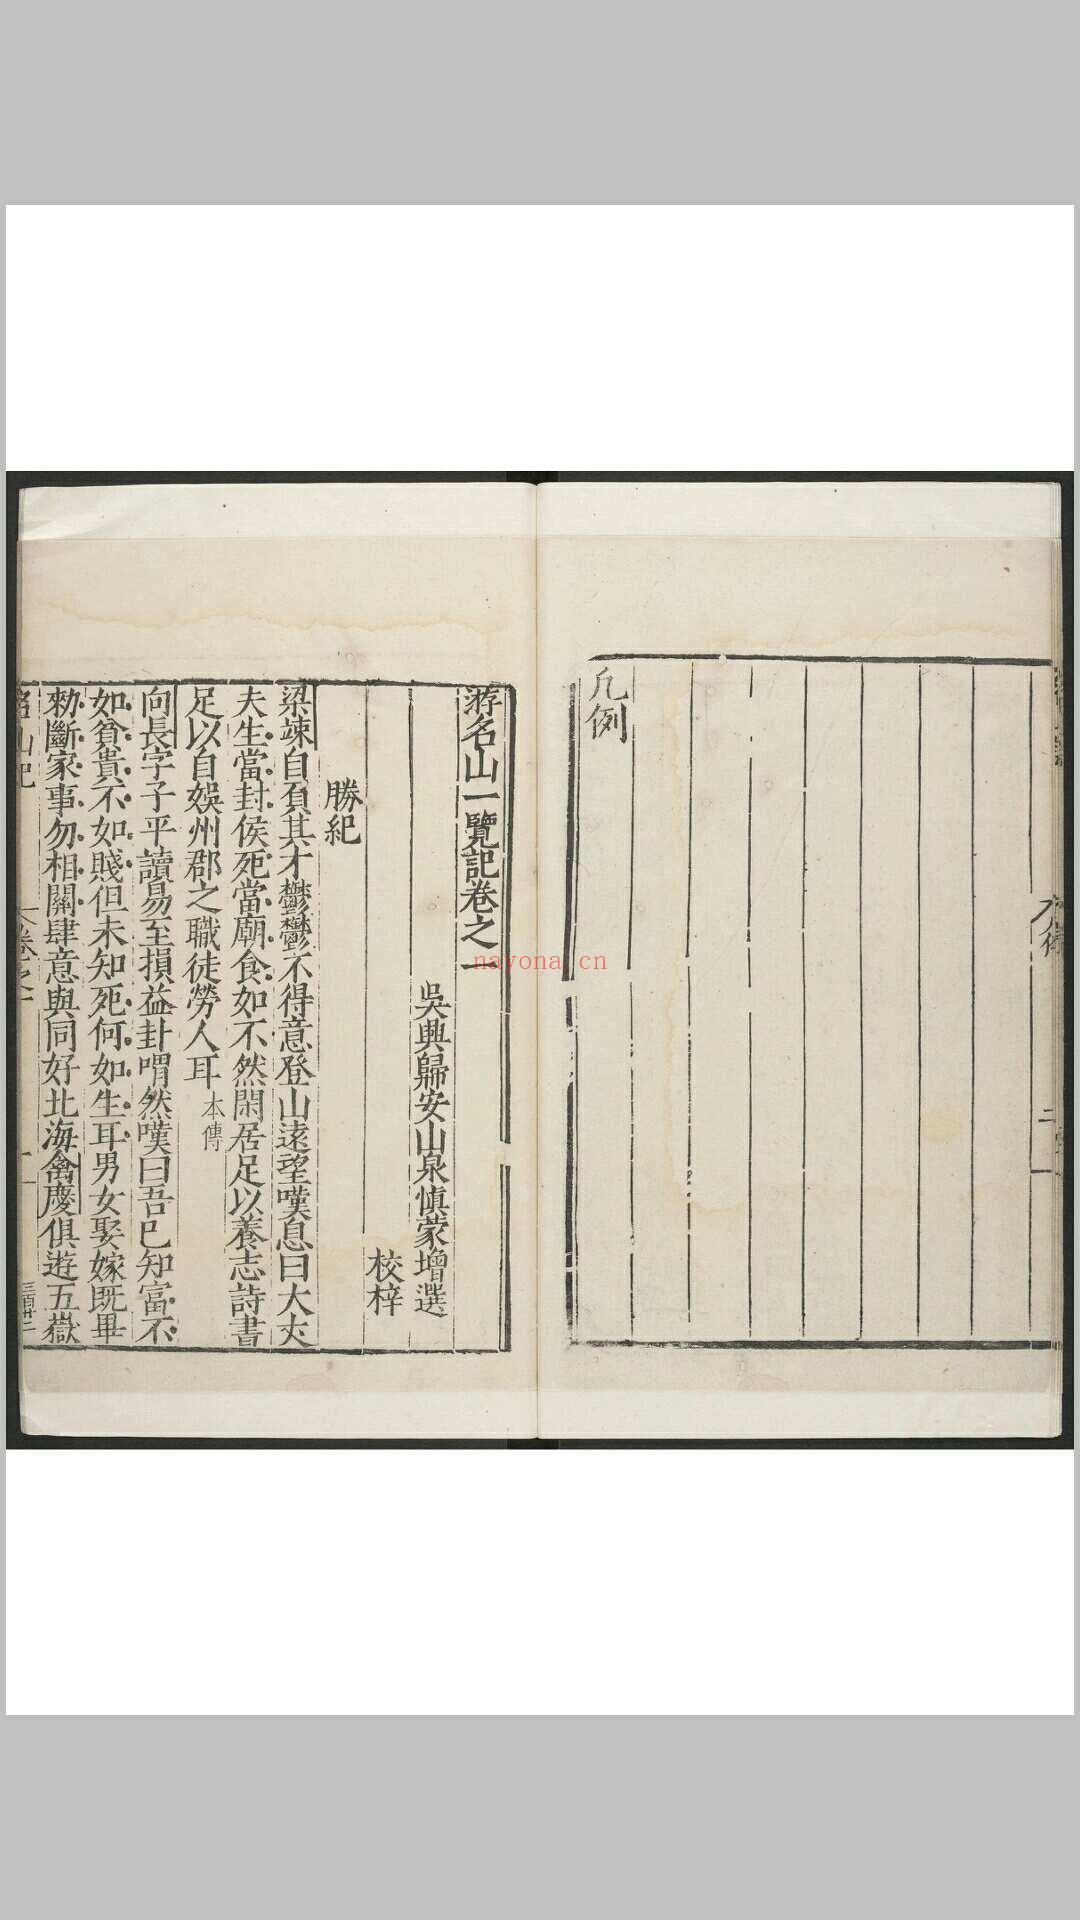 凡例
游名山一覽記卷之一
吳興歸安山泉愼蒙增選
校梓
勝紀
梁竦自負其才鬱鬱不得意登山遠望嘆息曰大丈
夫生當封侯死當廟食如不然閑居足以養志詩書
足以自娛州郡之職徒勞人耳本傳
向長字子平讀易至損益卦喟然嘆曰吾已知富不
如貧貴不如賤但未知死何如生耳男女娶嫁旣畢
勑斷家事勿相關肆意與同好北海禽慶俱遊五嶽
名山記
卷之一
一
三百廿二
nayona.cn